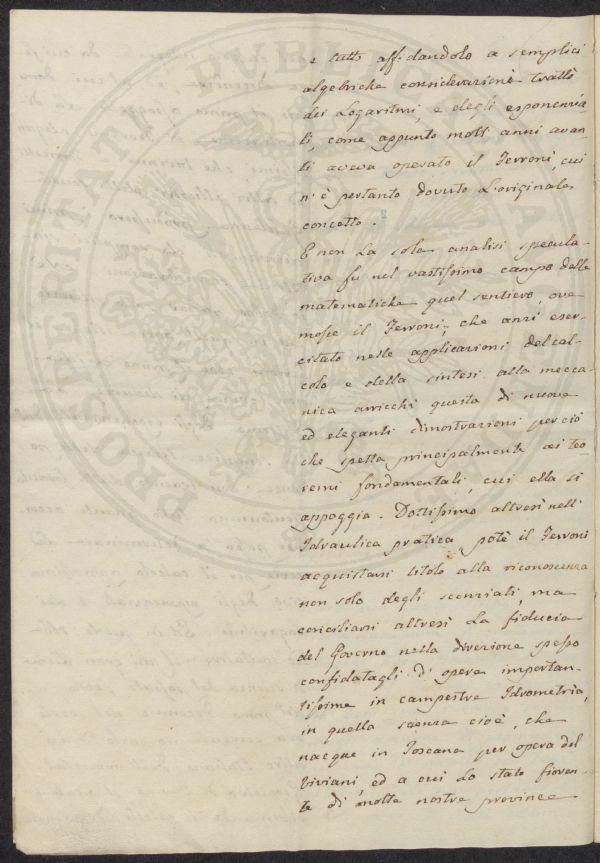 e tutto affidandolo a semplici
algebriche considerazioni trattò
dei Logaritmi, e degli esponenzia-
li, come appunto molt' anni avan-
ti aveva operato il Ferroni, cui
n' è pertanto dovuto L'originale
concetto.
E non La sola analisi specula-
tiva fu nel vastissimo campo delle
matematiche quel sentiero, ove
mosse il Ferroni; che anzi eser-
citato nelle applicazioni del cal-
colo e della sintesi alla mecca-
nica arricchì questa di nuove
ed eleganti dimostrazioni per ciò
che spetta principalmente ai teo-
remi fondamentali, cui ella si
appoggia. Dottissimo altresì nell'
Idraulica pratica potè il Ferroni
acquistarsi titolo alla riconoscenza
non solo degli scenziati, ma
conciliarsi altresì La fiducia
del Governo nella direzione spesso
confidatagli d' opere importan-
tissime in campestre Idrometria,
in quella scienza cioè, che
nacque in Toscana per opera del
Viviani, ed a cui Lo stato fioren-
te di molte nostre province
PROSPERITATI PVBLICAE